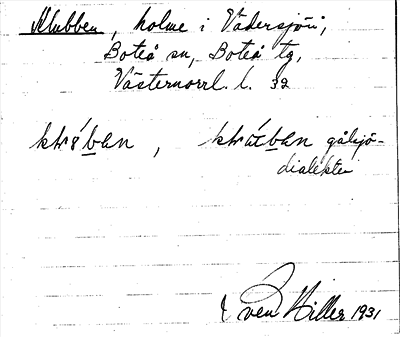 Klubben, holme i Vädersjön,
Boteå sn, Boteå tg,
Västernorrl. l. 32
gålsjö-
dialekten
Sven Hiller 1931